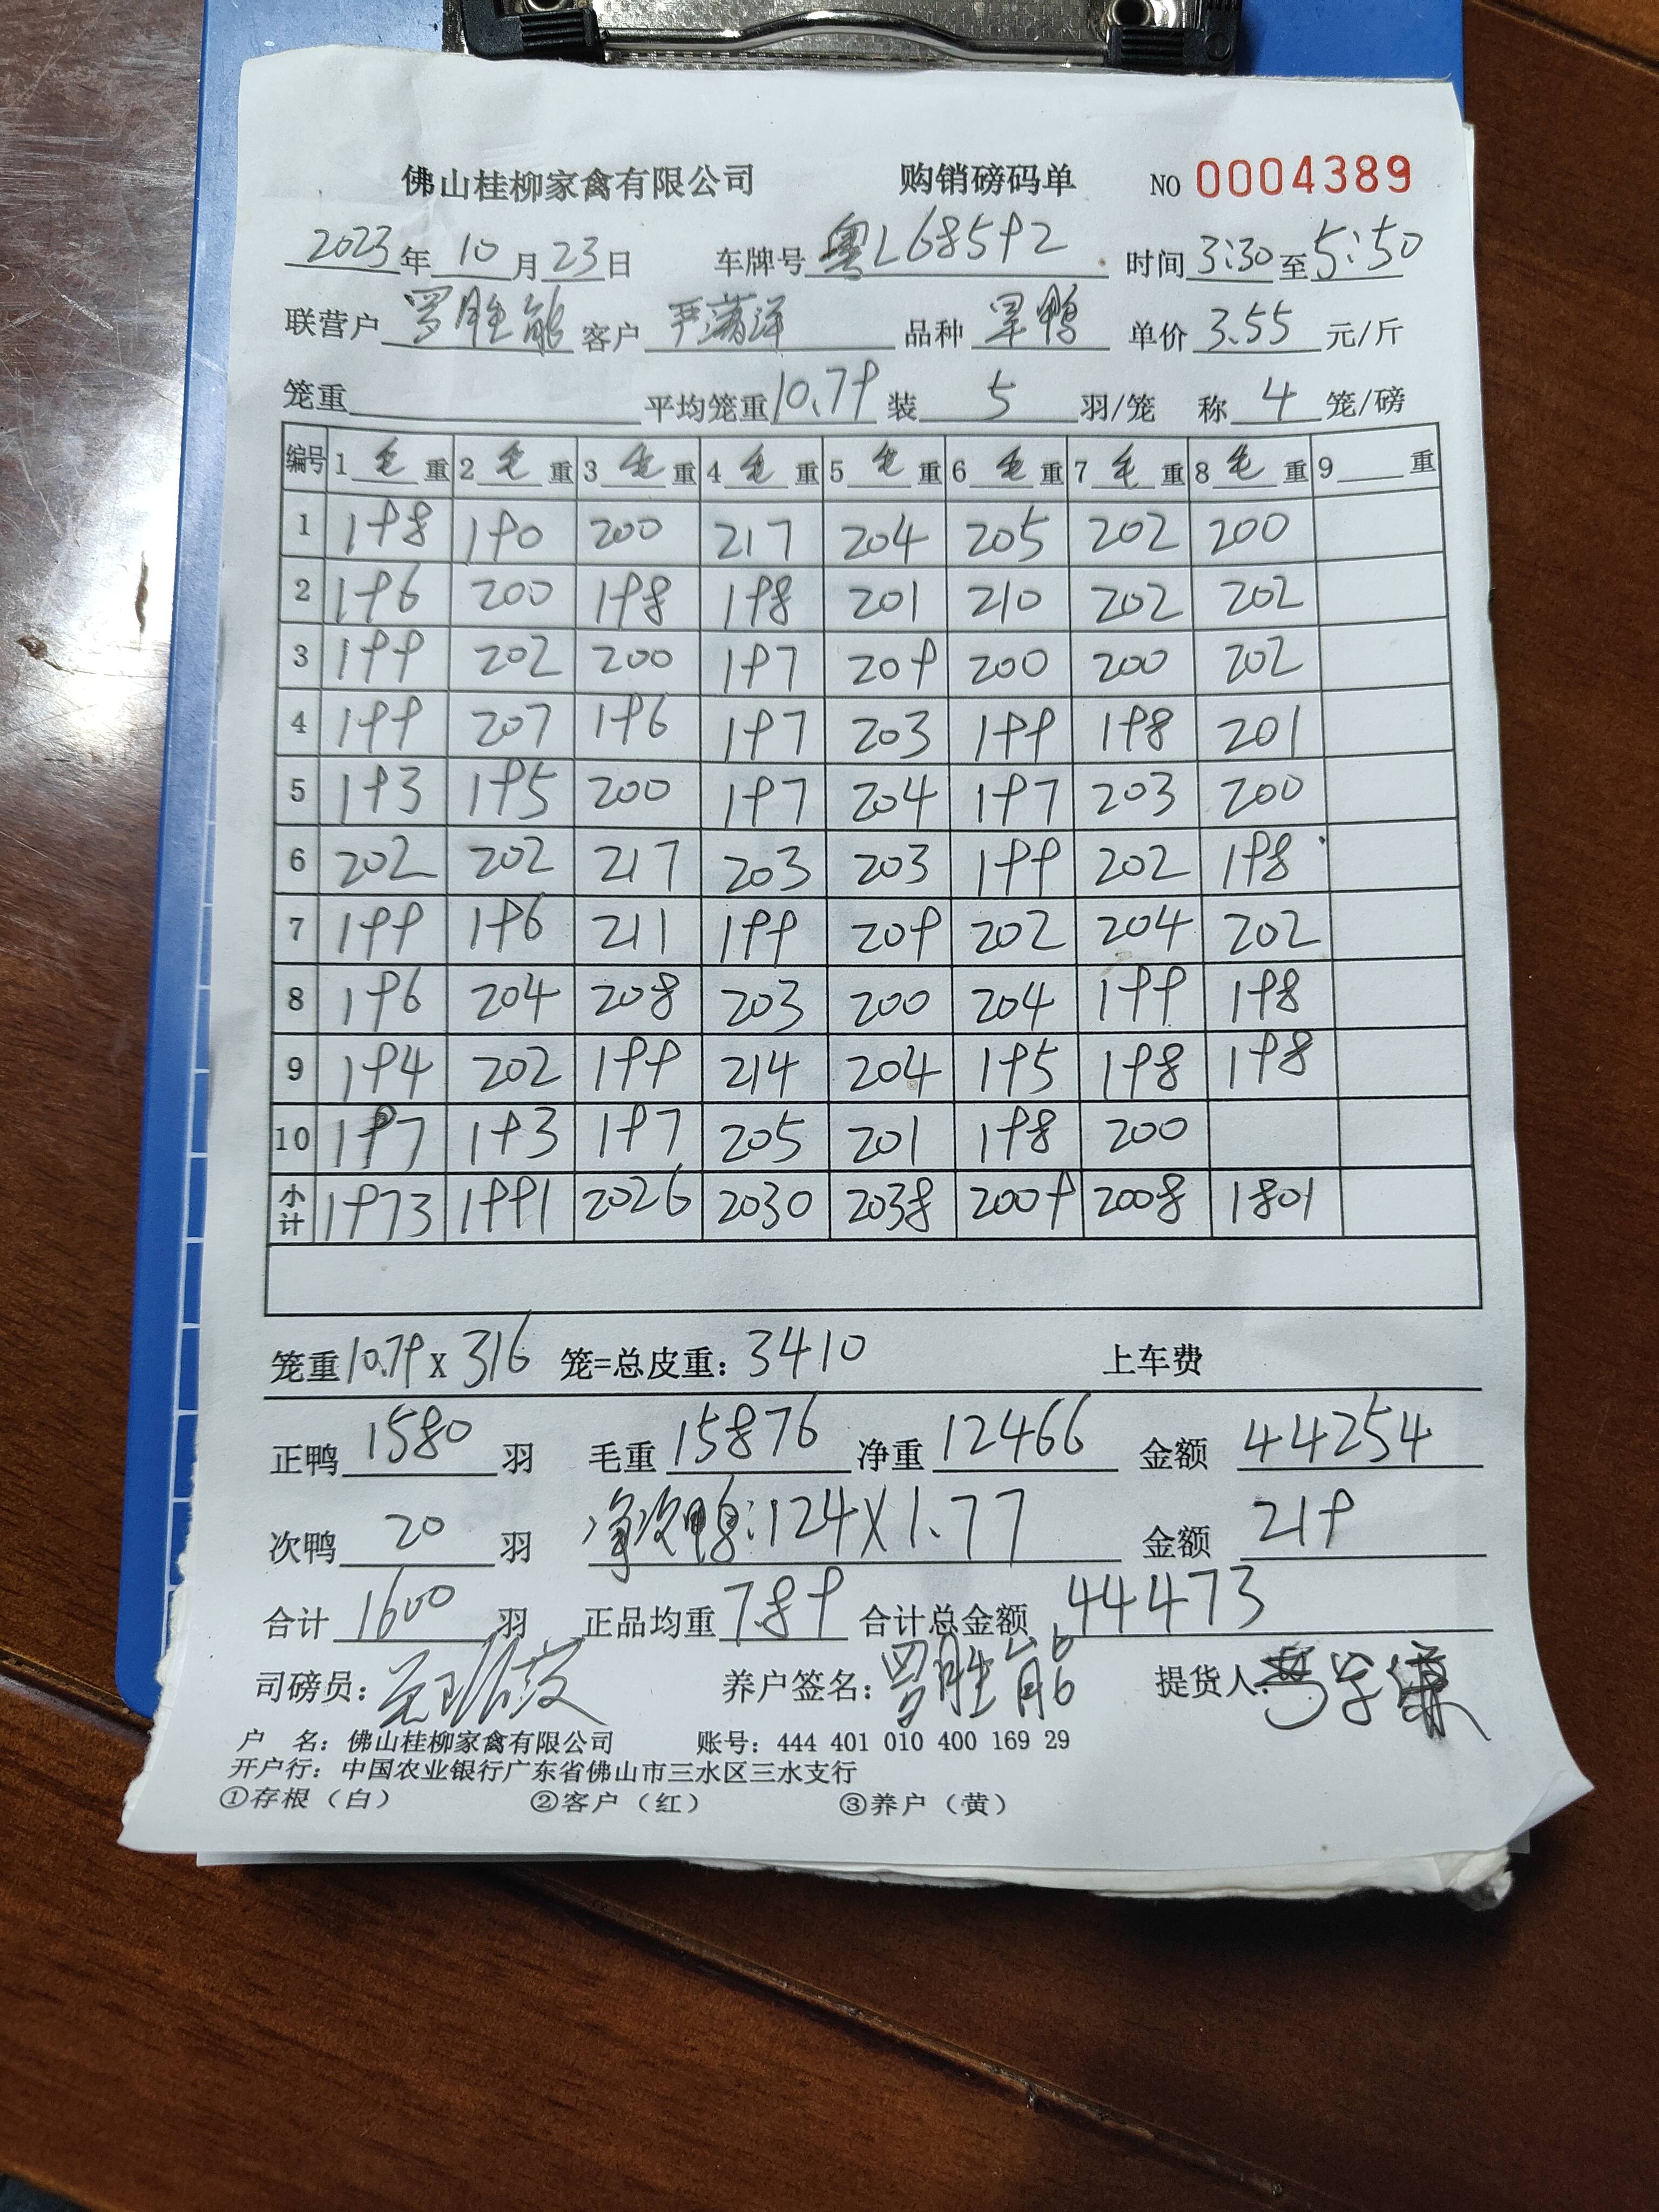 佛山桂柳家禽有限公司 购销磅码单 NO 0004389
2023年10月23日 车牌号 粤L68592 时间 3:30至5:50
联营户 罗胜能 客户 严满洋 品种 旱鸭 单价 3.55 元/斤
笼重 平均笼重 10.79 装 5 羽/笼 称 4 笼/磅
编号 1毛重 2毛重 3毛重 4毛重 5毛重 6毛重 7毛重 8毛重 9 重
1 198 190 200 217 204 205 202 200
2 196 200 198 198 201 210 202 202
3 199 202 200 197 209 200 200 202
4 199 207 196 197 203 199 198 201
5 193 195 200 197 204 197 203 200
6 202 202 217 203 203 199 202 198
7 199 196 211 199 209 202 204 202
8 196 204 208 203 200 204 199 198
9 194 202 199 214 204 195 198 198
10 197 193 197 205 201 198 200
小计 1973 1991 2026 2030 2038 2009 2008 1801
笼重 10.79 X 316 笼=总皮重: 3410 上车费
正鸭 1580 羽 毛重 15876 净重 12466 金额 44254
次鸭 20 羽 净次鸭:124X1.77 金额 219
合计 1600 羽 正品均重 7.89 合计总金额 44473
司磅员: 养户签名: 罗胜能 提货人:
户 名: 佛山桂柳家禽有限公司 账号: 444 401 010 400 169 29
开户行: 中国农业银行广东省佛山市三水区三水支行
①存根（白） ②客户（红） ③养户（黄）